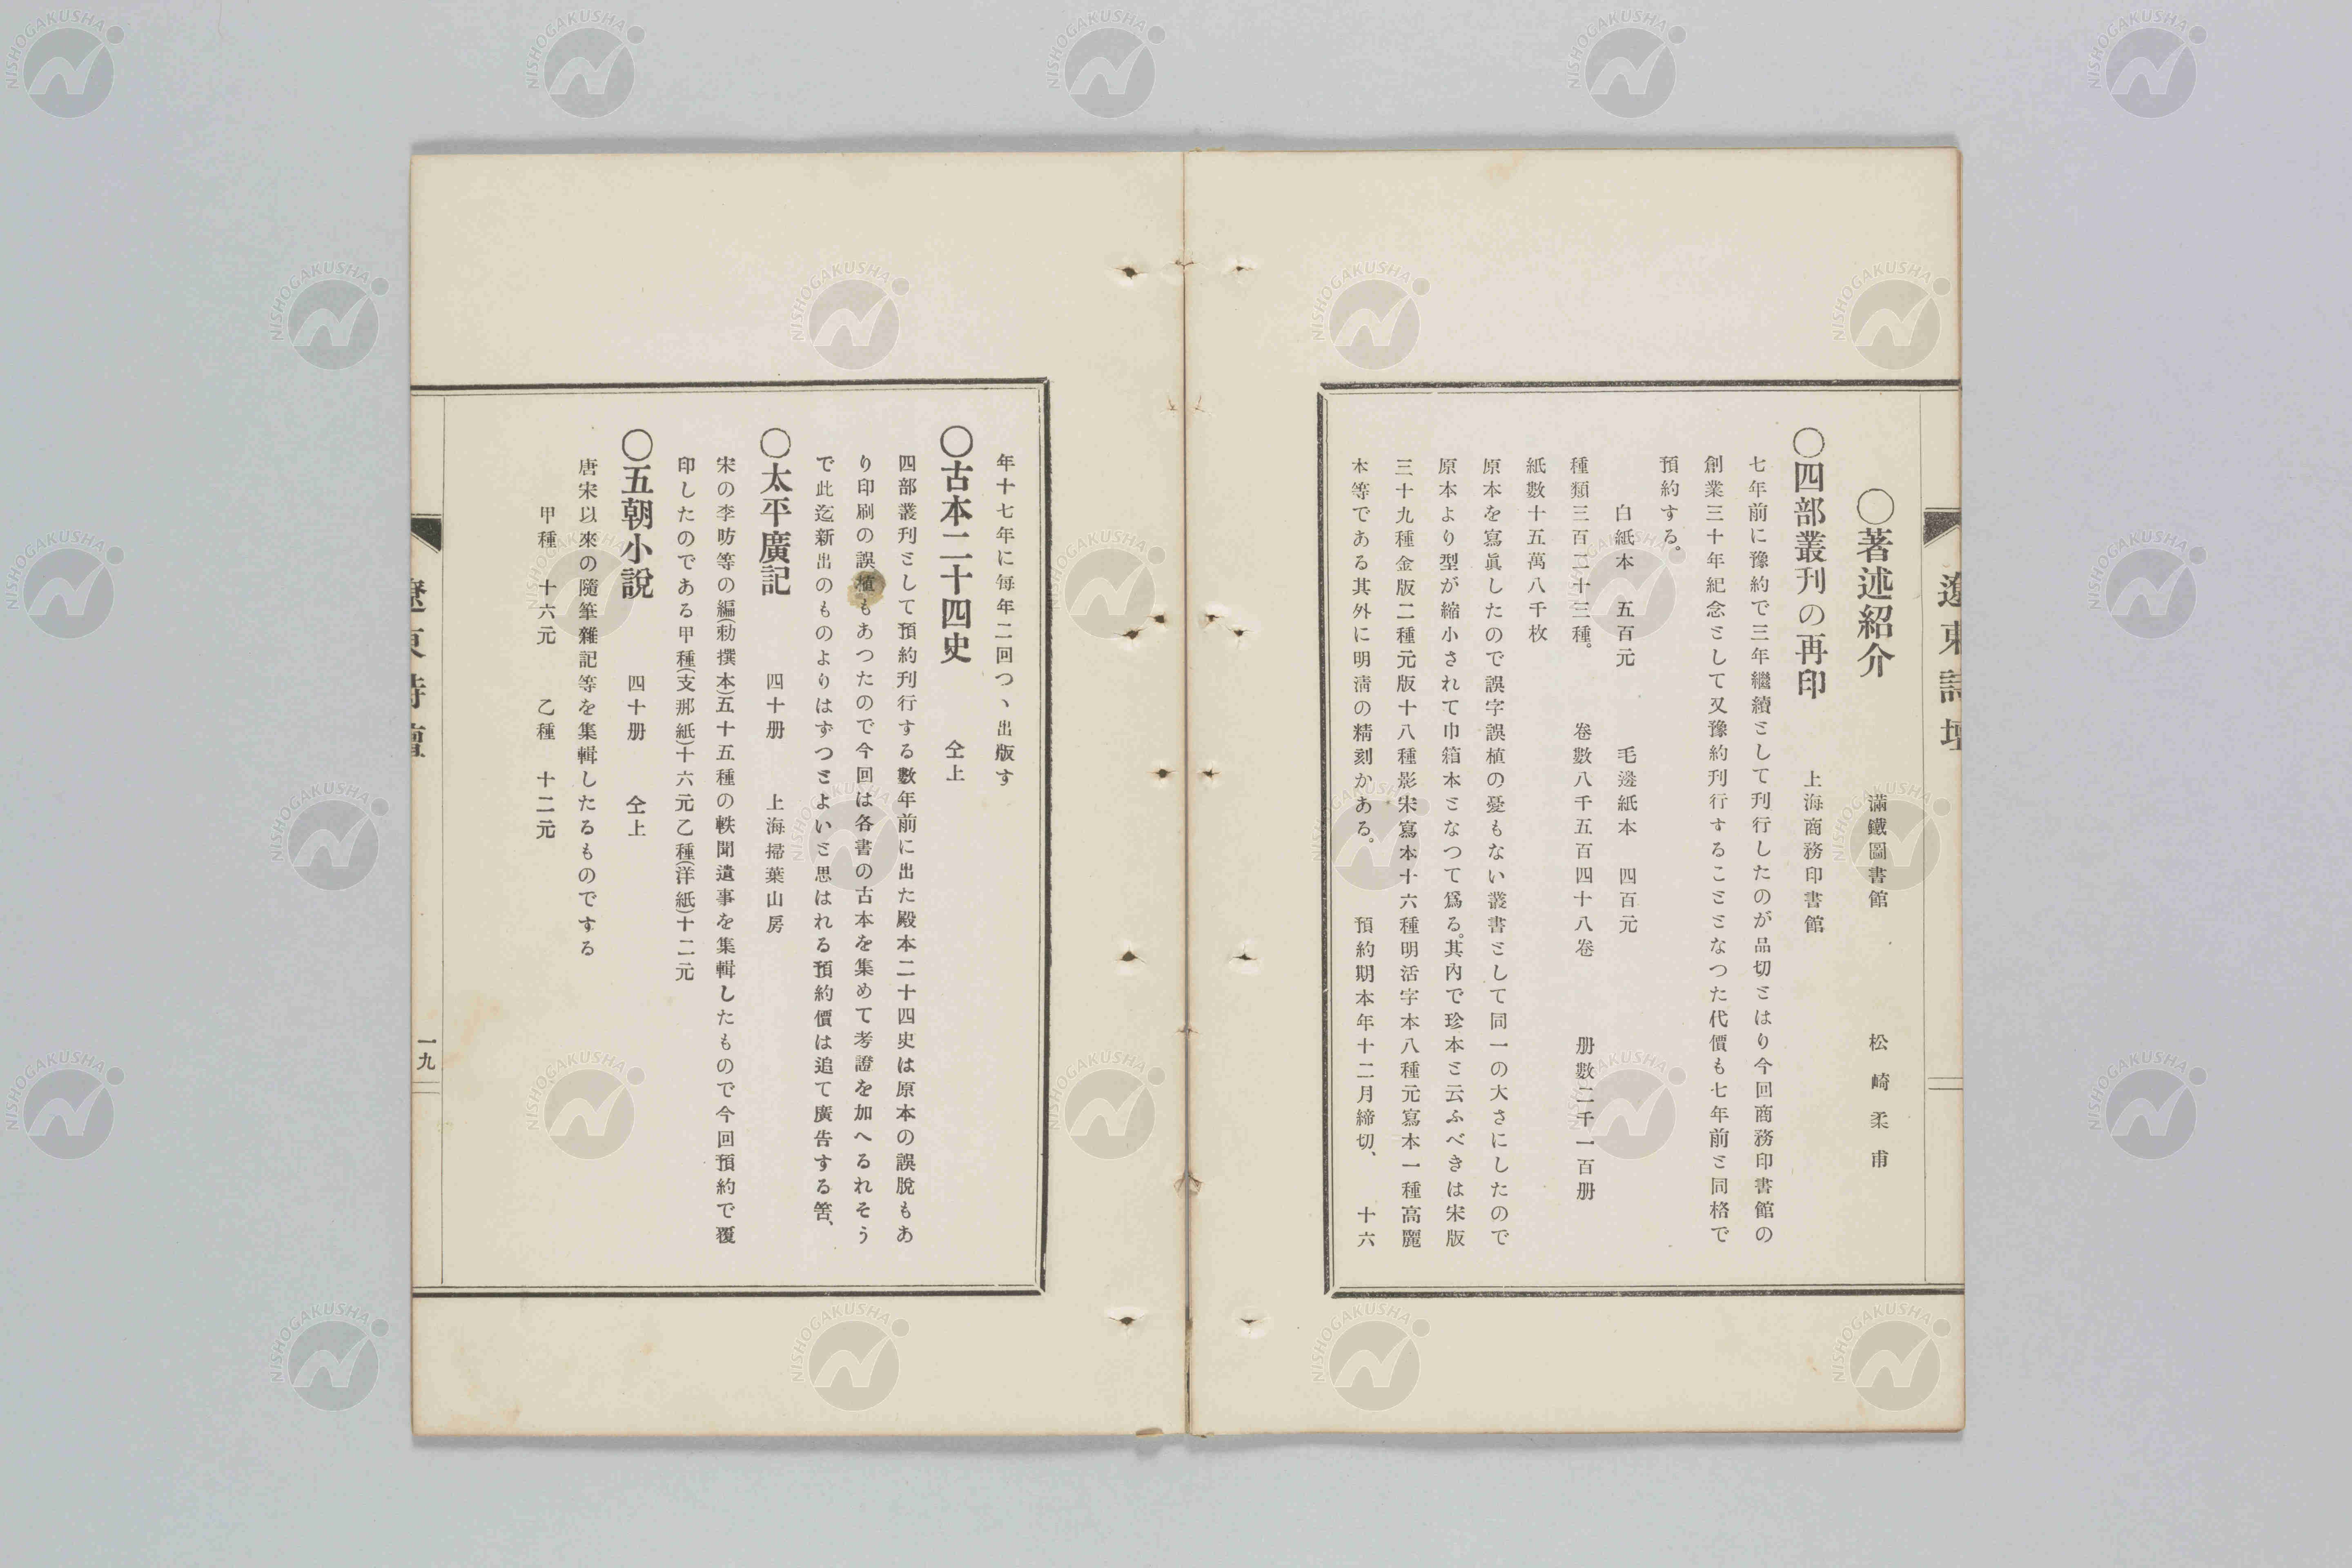 遼東詩壇
〇著述紹介　滿鐵圖書館　松崎柔甫
〇四部叢刊の再印　上海商務印書館
七年前に豫約で三年繼續として刊行したのが品切とはり今回商務印書館の
創業三十年紀念として又豫約刊行することとなつた代價も七年前と同格で
預約する。
白紙本　五百元　毛邊紙本　四百元
種類三百二十三種。　卷數八千五百四十八卷　册數二千一百册
紙數十五萬八千枚
原本を寫眞したので誤字誤植の憂もない叢書として同一の大さにしたので
原本より型が縮小されて巾箱本となつて爲る。其內で珍本と云ふべきは宋版
三十九種金版二種元版十八種影宋寫本十六種明活字本八種元寫本一種高麗
本等である其外に明淸の精刻かある。　預約期本年十二月締切、　十六
年十七年に每年二回つヽ出版す
〇古本二十四史　仝上
四部叢刊として預約刊行する數年前に出た殿本二十四史は原本の誤脫もあ
り印刷の誤植もあつたので今回は各書の古本を集めて考證を加へるれそう
で此迄新出のものよりはずつとよいと思はれる預約價は追て廣告する筈、
〇太平廣記　四十册　上海掃葉山房
宋の李昉等の編(勅撰本)五十五種の軼聞遺事を集輯したもので今回預約で覆
印したのである甲種(支那紙)十六元乙種(洋紙)十二元
〇五朝小說　四十册　仝上
唐宋以來の隨筆雜記等を集輯したるものでする
甲種　十六元　乙種　十二元
遼東詩壇
一九
NISHOGAKUSHA